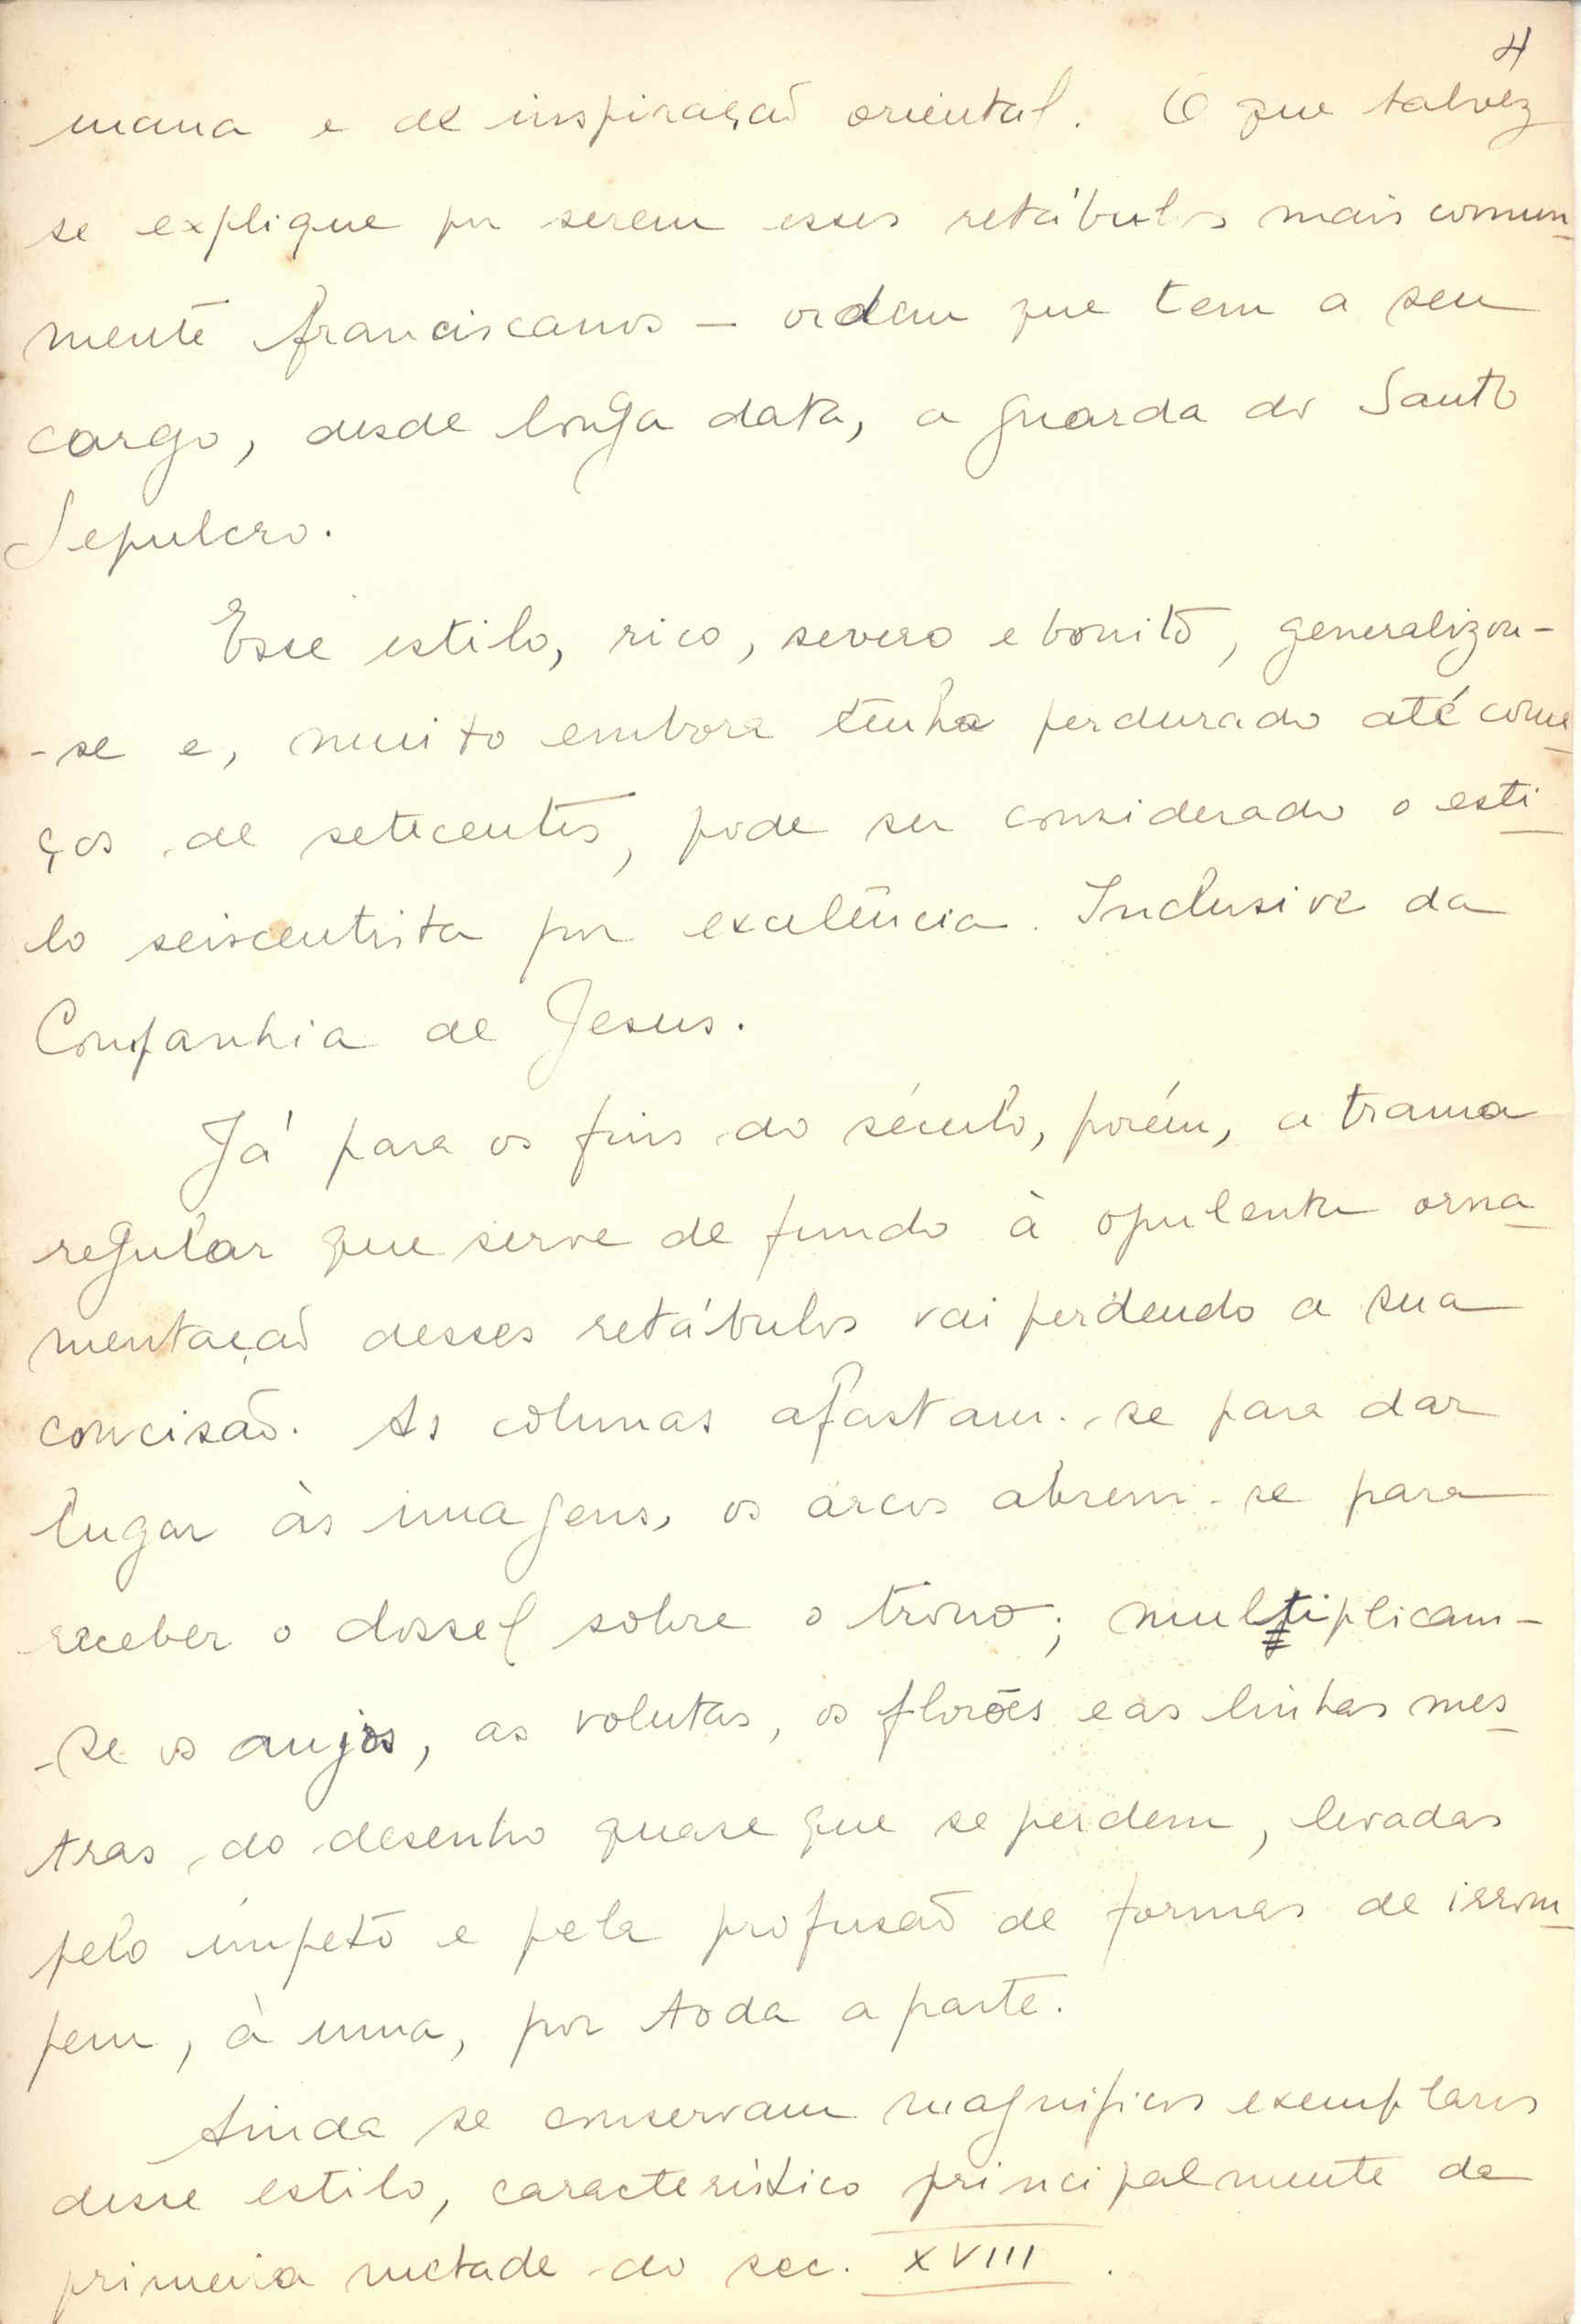 4
mana e de inspiração oriental. O que talvez
se explique por serem esses retábulos mais comun-
mente franciscanos — ordem que tem a seu
cargo, desde longa data, a guarda do Santo
Sepulcro.
Esse estilo, rico, severo e bonito, generalizou-
-se e, muito embora tenha perdurado até come-
ços de setecentos, pode ser considerado o esti-
lo seiscentista por excelência. Inclusive da
Companhia de Jesus.
Já para os fins do século, porém, a trama
regular que serve de fundo à opulenta orna-
mentação desses retábulos vai perdendo a sua
concisão. As colunas afastam-se para dar
lugar às imagens, os arcos abrem-se para
receber o dossel sobre o trono; multiplicam-
-se os anjos, as volutas, os florões e as linhas mes-
tras do desenho quase que se perdem, levadas
pelo ímpeto e pela profusão de formas de irrom-
pem, à uma, por toda a parte.
Ainda se conservam magníficos exemplares
desse estilo, característico principalmente da
primeira metade do sec. XVIII.